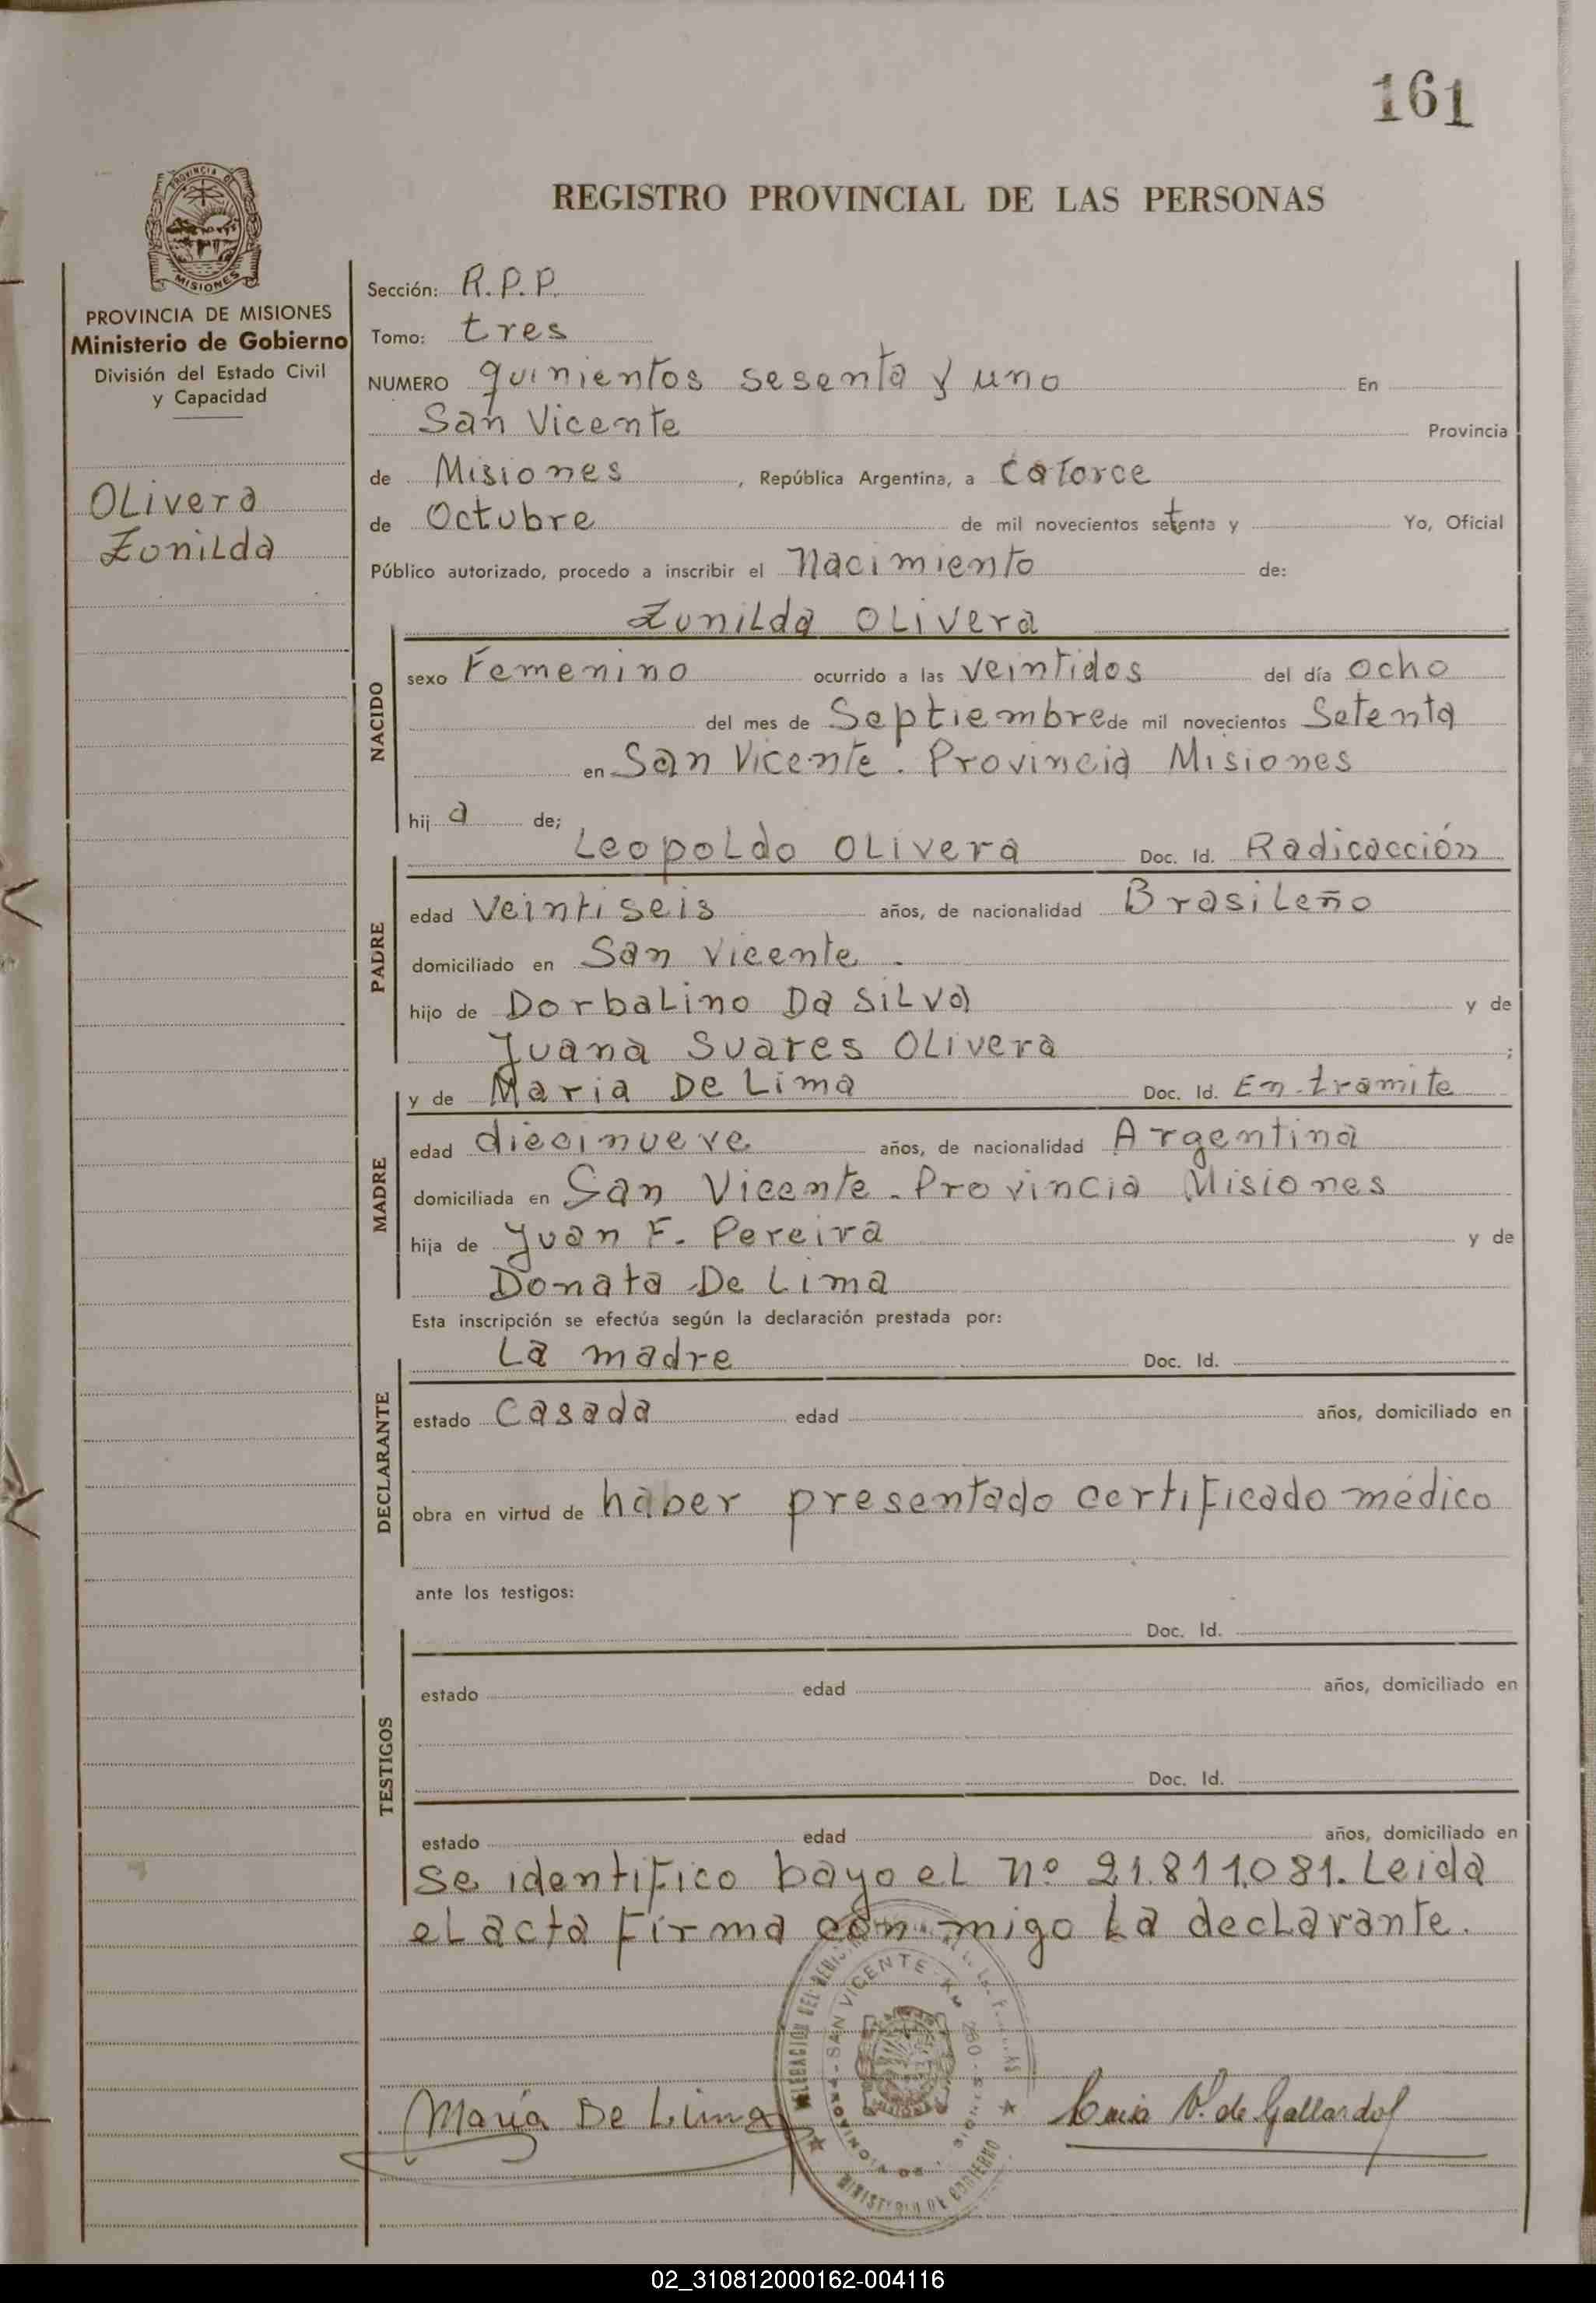 161
PROVINCIA DE MISIONES
REGISTRO PROVINCIAL DE LAS PERSONAS
PROVINCIA DE MISIONES
Ministerio de Gobierno
División del Estado Civil
y Capacidad
OLivera
Zunilda
Sección: R.P.P.
Tomo: tres
NUMERO quinientos sesenta y uno En
San Vicente Provincia
de Misiones, República Argentina, a catorce
de Octubre de mil novecientos setenta y Yo, Oficial
Público autorizado, procedo a inscribir el Nacimiento de:
Zunilda OLivera
NACIDO
sexo Femenino ocurrido a las veintidos del día ocho
del mes de Septiembre de mil novecientos Setenta
en San Vicente. Provincia Misiones
hij a de;
Leopoldo OLivera Doc. Id. Radicacción
PADRE
edad Veintiseis años, de nacionalidad Brasileño
domiciliado en San Vicente.
hijo de Dorbalino Da Silva y de
Juana Suares OLivera ;
y de Maria De Lima Doc. Id. En tramite
MADRE
edad diecinueve años, de nacionalidad Argentina
domiciliada en San Vicente. Provincia Misiones
hija de Juan F. Pereira y de
Donata De Lima
Esta inscripción se efectúa según la declaración prestada por:
La madre Doc. Id.
DECLARANTE
estado Casada edad años, domiciliado en
obra en virtud de haber presentado certificado médico
ante los testigos:
Doc. Id.
TESTIGOS
estado edad años, domiciliado en
Doc. Id.
estado edad años, domiciliado en
se identifico bayo el nº 21.811.081. Leida
el acta firma con migo la declarante.
SAN VICENTE
MINISTERIO DE GOBIERNO
María De Lima
V. de Gallardo
02_310812000162-004116